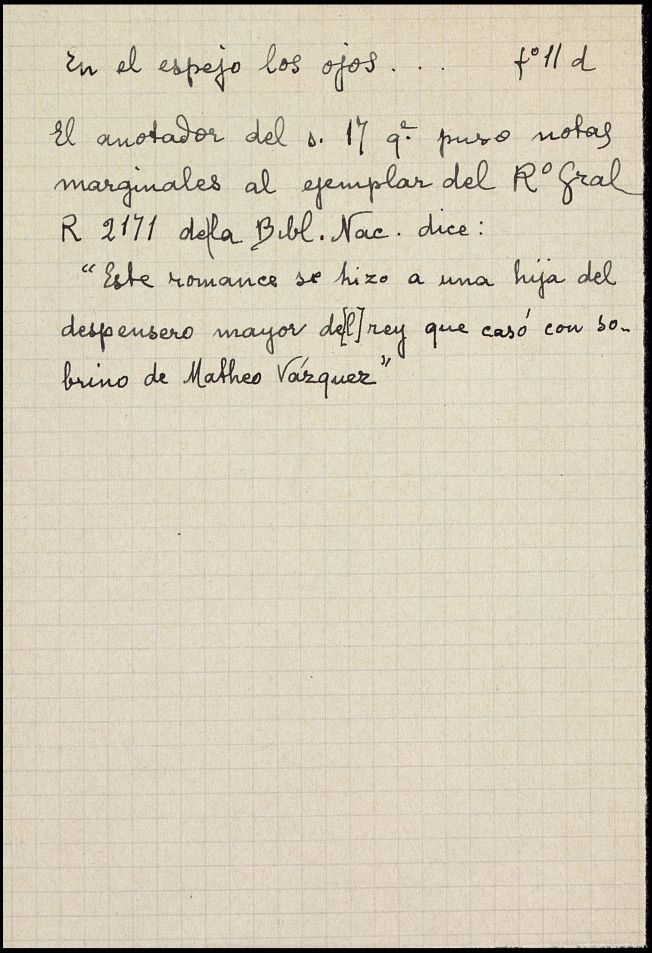 En el espejo los ojos . . . fº 11 d
El anotador del s. 17 q.e puso notas
marginales al ejemplar del Rº Gral
R 2171 de la Bibl. Nac. dice:
"Este romance se hizo a una hija del
despensero mayor de[l] rey que casó con so-
brino de Matheo Vázquez"